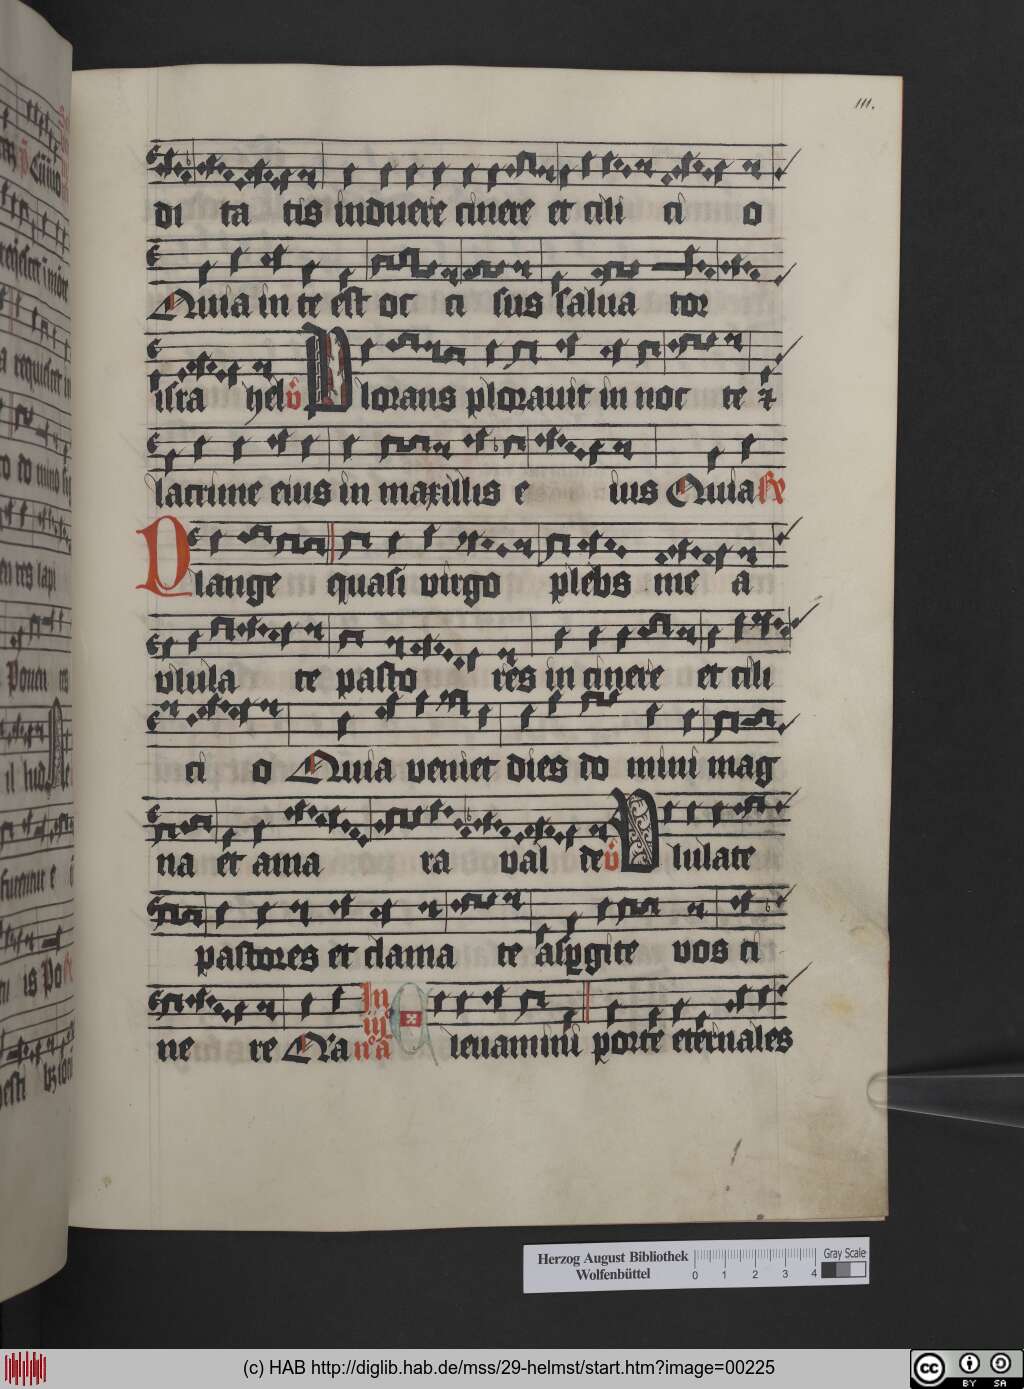 111.
di ta tis induere cinere et cili ci o
Quia in te est oc ci sus salua tor
isra hel v̂ Plorans plorauit in noc te ⁊
lacrime eius in maxillis e ius Quia R̂e
Plange quasi virgo plebs me a
vlula te pasto res in cinere et cili
ci o Quia veniet dies do mini mag
na et ama ra val de v̂ Vlulate
pastores et clama te aspgite vos ci
ne re Qa In iijº nºa Eleuamini porte eternales
Herzog August Bibliothek
Wolfenbüttel
Gray Scale
0 1 2 3 4
(c) HAB http://diglib.hab.de/mss/29-helmst/start.htm?image=00225
cc BY SA